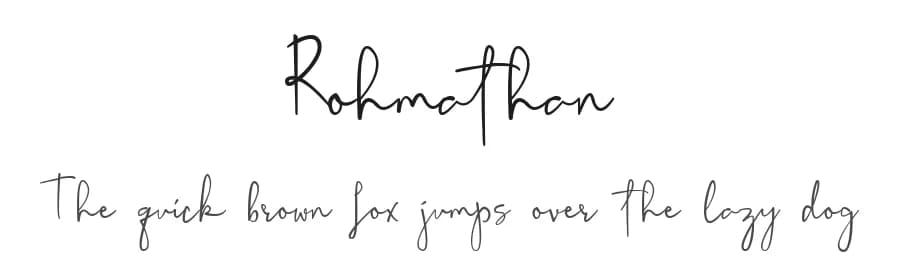 Rohmathan
The quick brown fox jumps over the lazy dog